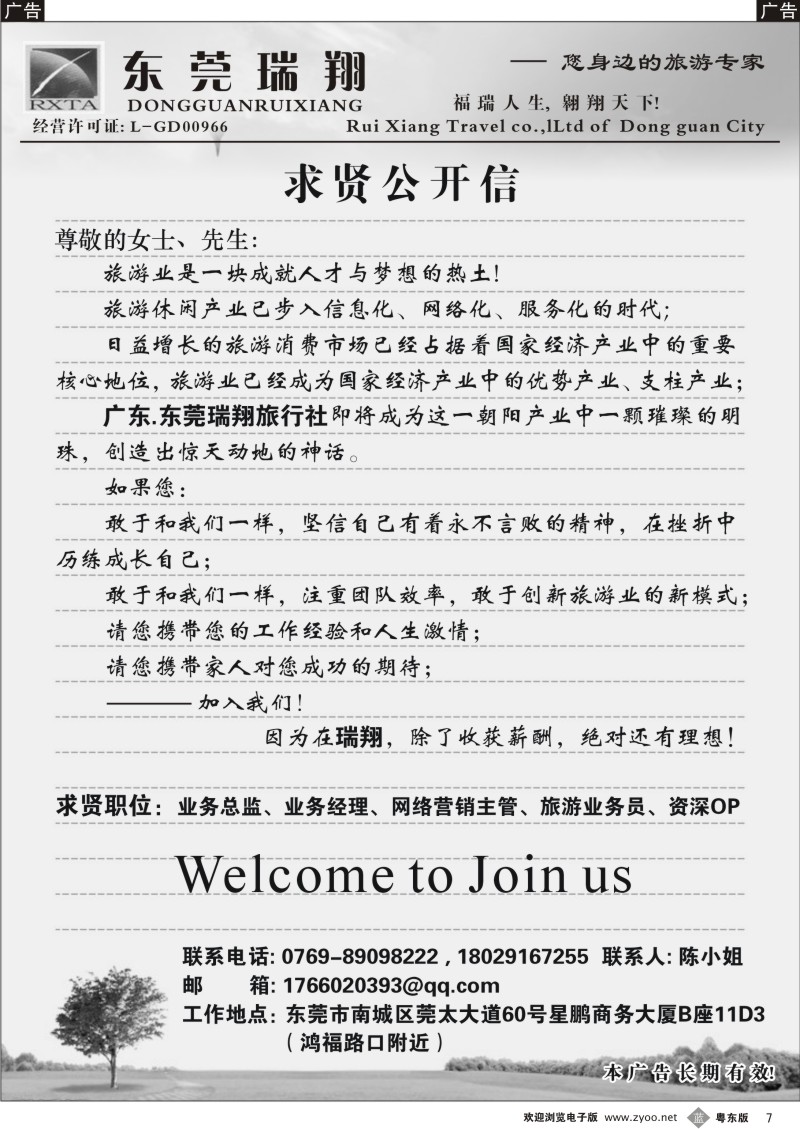 广告
广告
RXTA
东莞瑞翔
DONGGUANRUIXIANG
—— 您身边的旅游专家
福瑞人生, 翱翔天下!
经营许可证: L-GD00966
Rui Xiang Travel co.,lLtd of Dong guan City
求贤公开信
尊敬的女士、先生:
旅游业是一块成就人才与梦想的热土!
旅游休闲产业已步入信息化、网络化、服务化的时代;
日益增长的旅游消费市场已经占据着国家经济产业中的重要
核心地位, 旅游业已经成为国家经济产业中的优势产业、支柱产业;
广东.东莞瑞翔旅行社即将成为这一朝阳产业中一颗璀璨的明
珠, 创造出惊天动地的神话。
如果您:
敢于和我们一样, 坚信自己有着永不言败的精神, 在挫折中
历练成长自己;
敢于和我们一样, 注重团队效率, 敢于创新旅游业的新模式;
请您携带您的工作经验和人生激情;
请您携带家人对您成功的期待;
———— 加入我们!
因为在瑞翔, 除了收获薪酬, 绝对还有理想!
求贤职位: 业务总监、业务经理、网络营销主管、旅游业务员、资深OP
Welcome to Join us
联系电话: 0769-89098222 , 18029167255 联系人: 陈小姐
邮 箱: 1766020393@qq.com
工作地点: 东莞市南城区莞太大道60号星鹏商务大厦B座11D3
( 鸿福路口附近 )
本广告长期有效!
欢迎浏览电子版 www.zyoo.net 蓝 粤东版 7